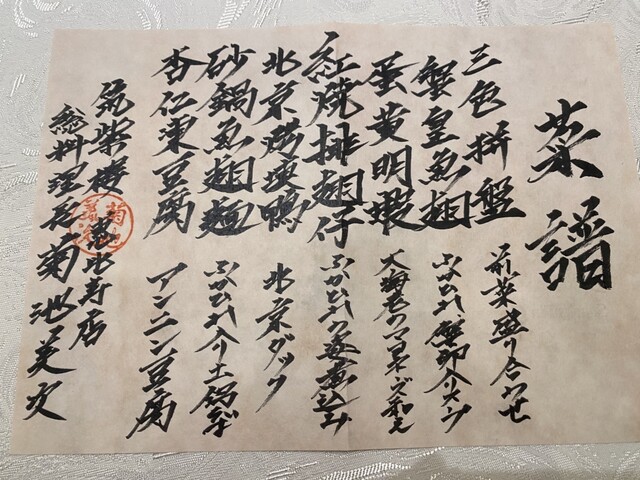 菜譜
三色拼盤 前菜盛り合わせ
蟹皇魚翅 ふかひれ蟹卵入りスープ
蛋黄明蝦 大海老のマヨネーズ和え
紅焼排翅仔 ふかひれの姿煮込み
北京烤鴨 北京ダック
砂鍋魚翅麺 ふかひれ入り土鍋そば
杏仁凍豆腐 アンニン豆腐
筑紫樓 恵比寿店
総料理長 菊池美次